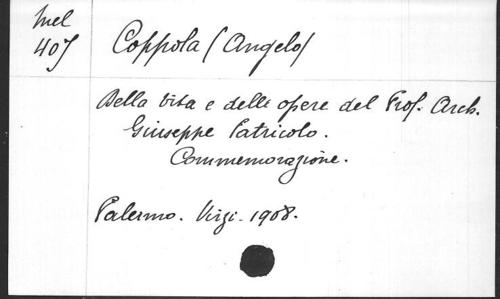 Mel
407
Coppola (Angelo)
Della vita e delle opere del Prof. Arch.
Giuseppe Patricolo.
Commemorazione.
Palermo. Virzi. 1908.